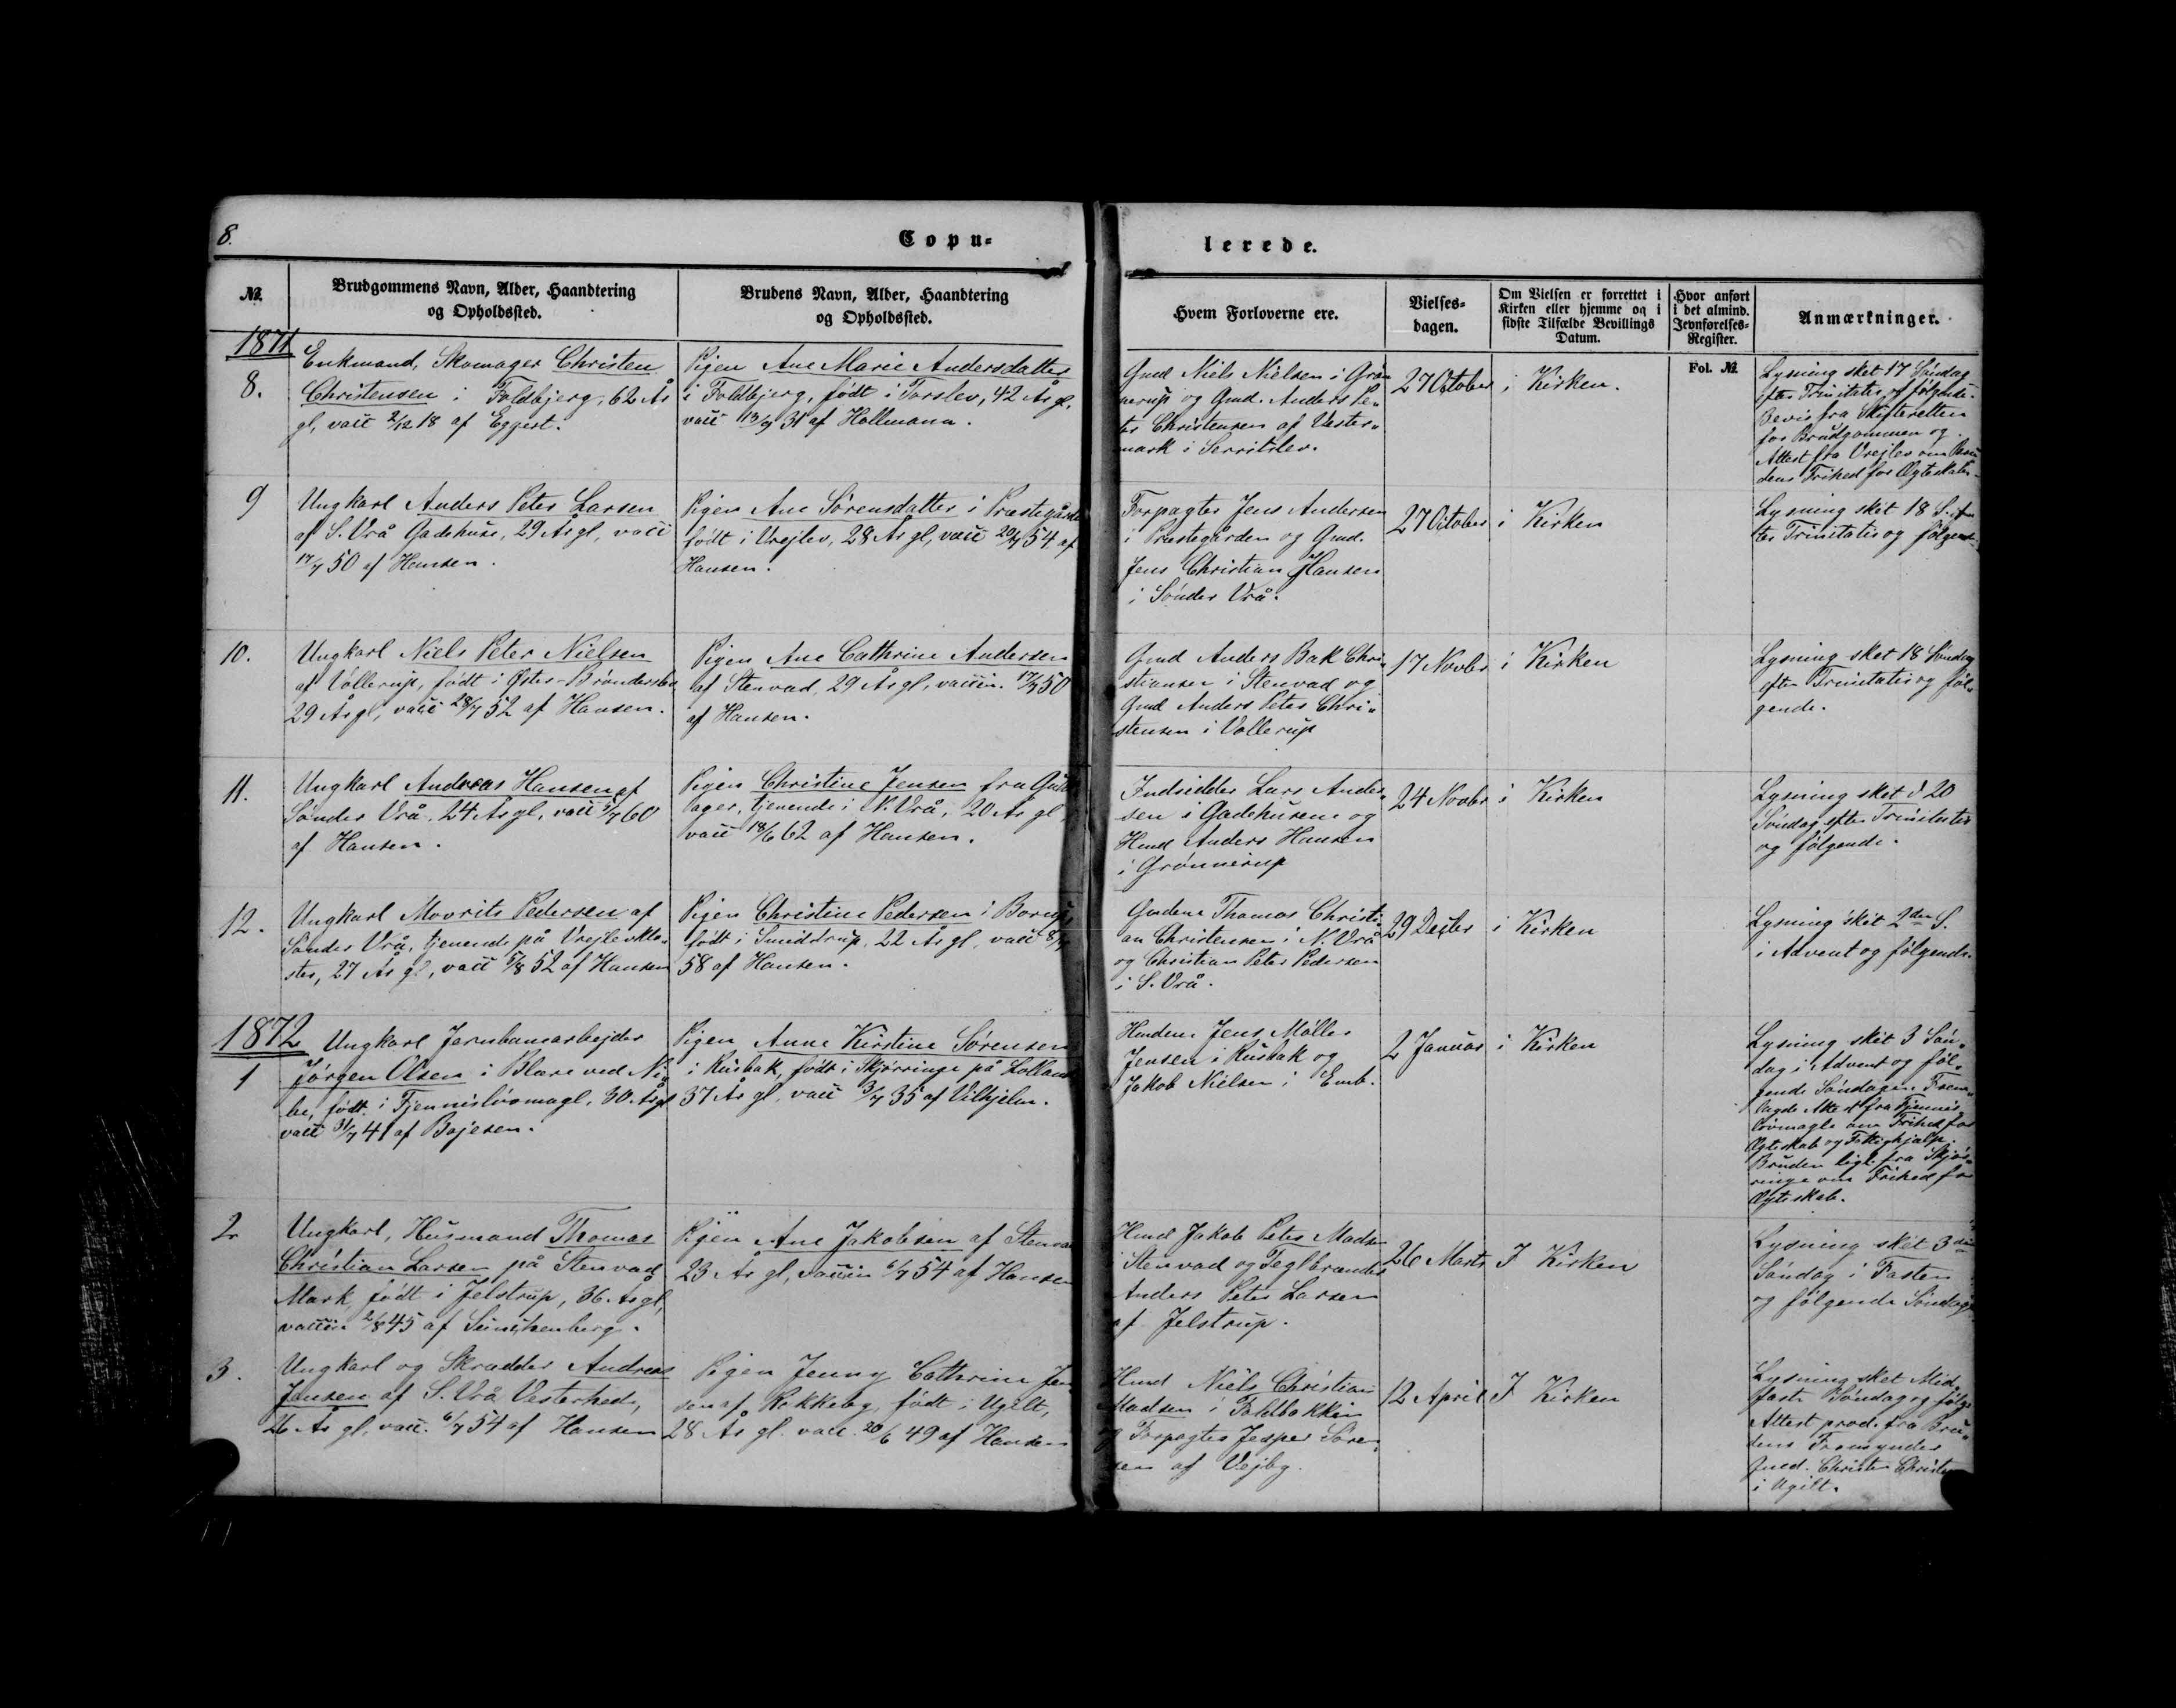 8.
Copu=
lerede.
№
Brudgommens Navn, Alder, Haandtering
og Opholdssted.
Brudens Navn, Alder, Haandtering
og Opholdssted.
Hvem Forloverne ere.
Vielses=
dagen.
Om Vielsen er forrettet i
Kirken eller hjemme og i
sidste Tilfælde Bevillings
Datum.
Hvor anført
i det almind.
Jevnførelses=
Register.
Fol. №
Anmærkninger.
1871
8.
Enkmand, Skomager Christen
Christensen i Foldbjerg, 62 År
gl, vacc 2/12 18 af Eggert.
Pigen Ane Marie Andersdatter
i Foldbjerg, født i Torslev, 42 År gl.
vacc 13/9 31 af Hollmann.
Gmd Niels Nielsen i Grøn
nerup og Gmd. Anders Pe„
ter Christensen af Vester„
mark i Serritslev.
27 October
i Kirken.
Lysning sket 17 Søndag
efter Trinitatis og følgende.
Bevis fra Skifteretten
for Brudgommen og
Attest fra Vrejlev om Bru
dens Frihed for Ægteskab
9
Ungkarl Anders Peter Larsen
af S. Vrå Gadehuse, 29 År gl, vacc
17/7 50 af Hansen.
Pigen Ane Sørensdatter i Præstegård
født i Vrejlev, 28 År gl, vacc 20/7 54 af
Hansen.
Forpagter Jens Andersen
i Præstegården og Gmd.
Jens Christian Hansen
i Sønder Vrå.
27 October
i Kirken
Lysning skét 18 S. ef
ter Trinitatis og følgend
10.
Ungkarl Niels Peter Nielsen
af Vollerup, født i Øster-Brønderslev
29 År gl, vacc 28/7 52 af Hansen.
Pigen Ane Cathrine Andersen
af Stenvad, 29 År gl, vaccin. 17/7 50
af Hansen.
Gmd Anders Bak Chri„
stiansen i Stenvad og
Gmd Anders Peter Chri„
stensen i Vollerup
17 Novbr
i Kirken
Lysning skét 18 Søndag
efter Trinitatis og føl„
gende.
11.
Ungkarl Andreas Hansen af
Sønder Vrå, 24 År gl, vacc 5/7 60
af Hansen.
Pigen Christine Jensen fra Guld
ager, tjenende i N. Vrå, 20 År gl
vacc 18/6 62 af Hansen.
Indsidder Lars Ander„
sen i Gadehusene og
Hmd Anders Hansen
i Grønnerup
24 Novbr
i Kirken
Lysning skét d 20
Søndag efter Trinitatis
og følgende.
12.
Ungkarl Movrits Pedersen af
Sønder Vrå, tjenende på Vrejlevklo„
ster, 27 År gl, vacc 5/8 52 af Hansen
Pigen Christine Pedersen i Borup
født i Smidstrup, 22 År gl, vacc 8/7
58 af Hansen.
Gmdene Thomas Christi„
an Christensen i N. Vrå
og Christian Peter Pedersen
i S. Vrå.
29 Decbr
i Kirken
Lysning skét 2den S.
i Advent og følgende.
1872
1
Ungkarl Jernbanearbejder
Jørgen Olsen i Blære ved Ni„
be, født i Fjennislövmagl, 30 År gl
vacc 31/7 41 af Bojesen.
Pigen Anne Kirstine Sørensen
i Rusbak, født i Skjørringe på Lolland
37 År gl, vacc 3/7 35 af Vilhjelm.
Hmdene Jens Møller
Jensen i Rusbak og
Jakob Nielsen i Emb.
2 Januar
i Kirken
Lysning skét 3 Søn„
dag i Advent og føl„
gende Søndage. Frem„
lagde Attest fra Fjennis
lövmagle om Frihed for
Ægteskab og Fattighjælp.
Bruden lige fra Skjør„
ringe om Frihed for
Ægteskab.
2
Ungkarl, Husmand Thomas
Christian Larsen på Stenvad
Mark, født i Jelstrup, 36 År gl,
vaccin 2/8 45 af
Pigen Ane Jakobsen af Stenvad
23 År gl, vaccin 6/7 54 af Hansen
Hmd Jakob Peter Madsen
i Stenvad og Teglbrænder
Anders Peter Larsen
af Jelstrup.
26 Marts
I Kirken
Lysning skét 3die
Søndag i Fasten
og følgende Søndag
3.
Ungkarl og Skrædder Andreas
Jensen af S. Vrå Vesterhede,
26 År gl, vacc. 6/7 54 af Hansen
Pigen Jenny Cathrine Jen
sen af Rakkeby, født i Ugilt,
28 År gl. vacc. 20/6 49 af Hansen
Hmd Niels Christian
Madsen i Foldbakken
og Forpagter Jesper Søren
sen af Vejby.
12 April
I Kirken
Lysning sket Mid„
faste Søndag og følg.
Attest prod. fra Bru„
dens Formynder
Gmd. Christen Christen
i Ugilt.